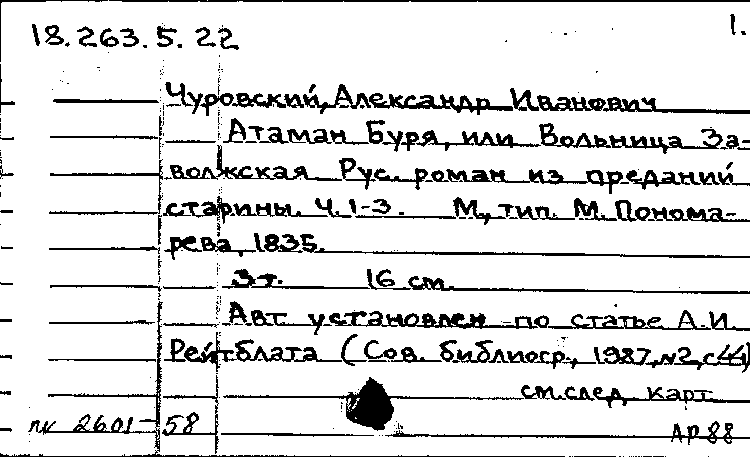 18.263.5.22
1.
Чуровский, Александр Иванович
Атаман Буря, или Вольница За-
волжская. Рус. роман из преданий
старины. Ч. 1-3. М., тип. М. Понома-
рева, 1835.
3 т. 16 см.
Авт. установлен по статье А.И.
Рейтблата (Сов. библиогр., 1987, №2, с.44)
см. след. карт.
пк 2601-58
АР 88